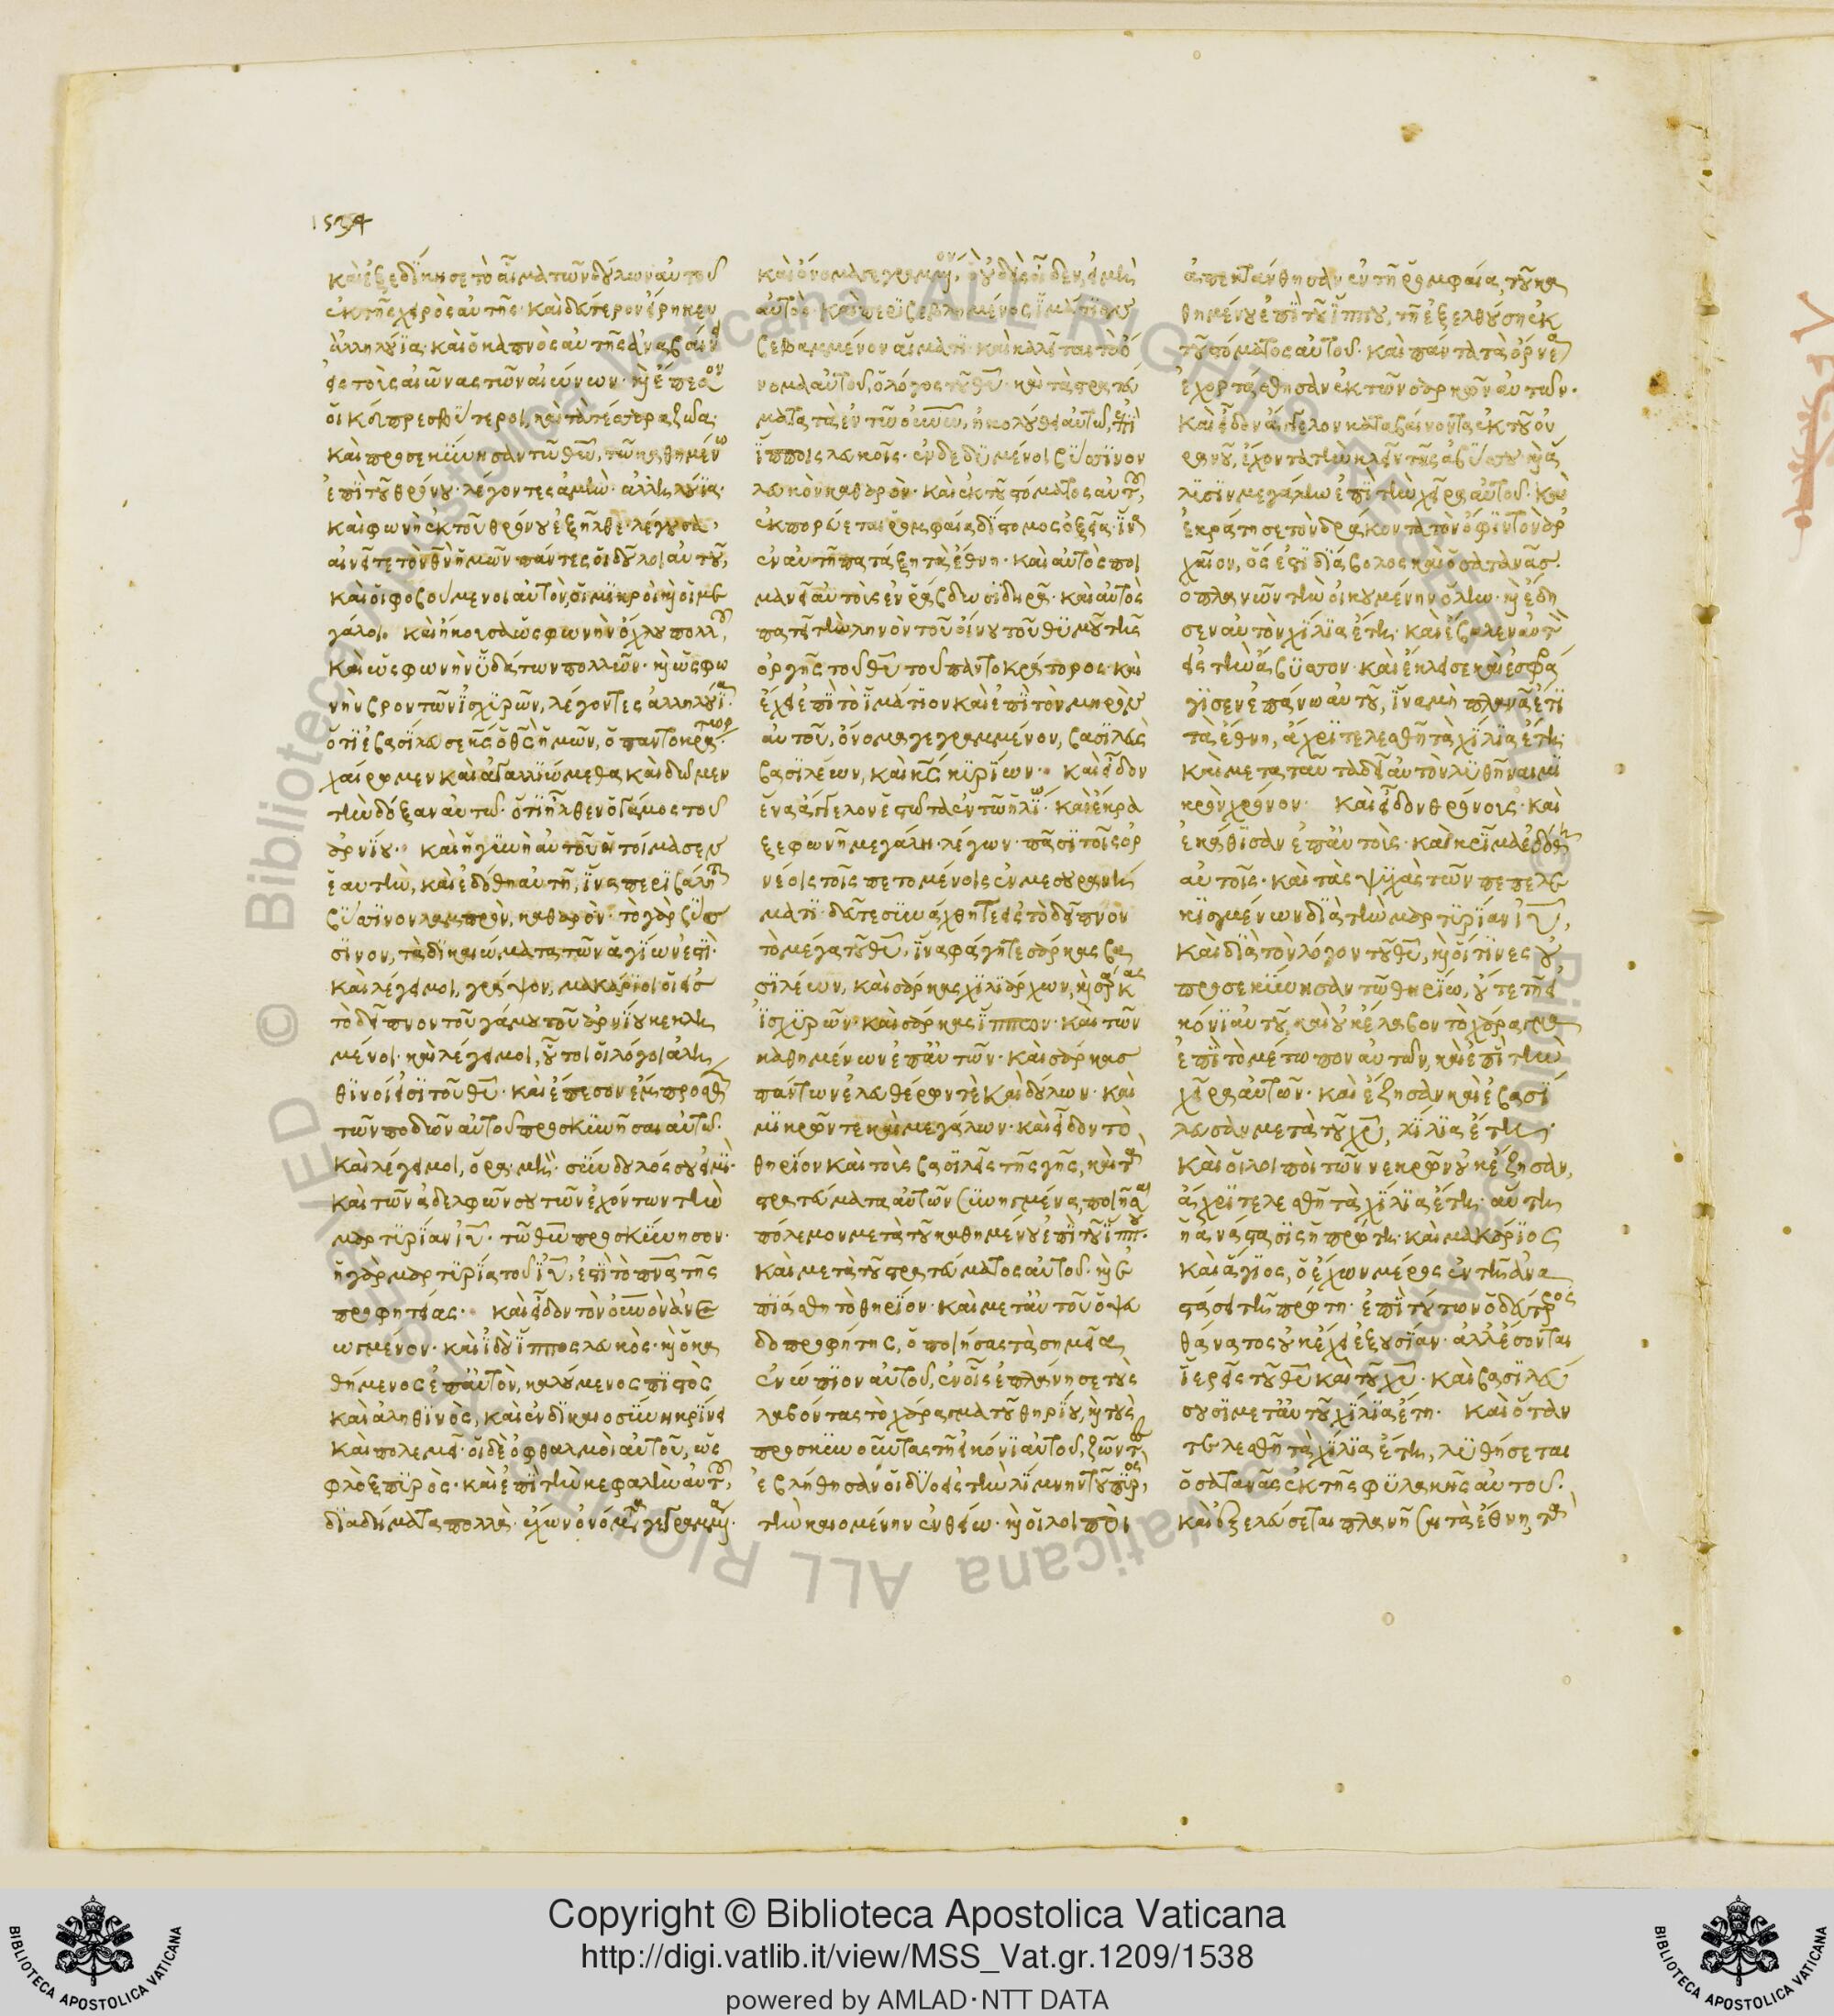 1534
καὶ ἐξεδίκησε τὸ αἷμα τῶν δούλων αὐτοῦ
ἐκ τῆς χειρὸς αὐτῆς· καὶ δεύτερον εἴρηκεν
ἀλληλούϊα· καὶ ὁ καπνὸς αὐτῆς ἀναβαίνει
εἰς τοὺς αἰῶνας τῶν αἰώνων· καὶ ἔπεσον
οἱ κδ πρεσβύτεροι, καὶ τὰ τέσσαρα ζῶα·
καὶ προσεκύνησαν τῶ θῶ, τῶ καθημένω
ἐπὶ τοῦ θρόνου· λέγοντες ἀμήν· ἀλληλούϊα·
καὶ φωνὴ ἐκ τοῦ θρόνου ἐξῆλθε λέγουσα,
αἰνεῖτε τὸν θν ἡμῶν πάντες οἱ δοῦλοι αὐτοῦ,
καὶ οἱ φοβούμενοι αὐτὸν, οἱ μικροὶ καὶ οἱ με
γάλοι· καὶ ἤκουσα ὡς φωνὴν ὄχλου πολλοῦ,
καὶ ὡς φωνὴν ὑδάτων πολλῶν· καὶ ὡς φω
νὴν βροντῶν ἰσχυρῶν, λέγοντες ἀλληλούϊα·
ὅτι ἐβασίλευσε κς ὁ θς ἡμῶν, ὁ παντοκράτωρ·
χαίρωμεν καὶ ἀγαλλιώμεθα καὶ δῶμεν
τὴν δόξαν αὐτῶ· ὅτι ἦλθεν ὁ γάμος τοῦ
ἀρνίου· καὶ ἡ γυνὴ αὐτοῦ ἡτοίμασεν
ἑαυτὴν, καὶ ἐδόθη αὐτῆ, ἵνα περιβάληται
βύσσινον λαμπρὸν, καθαρὸν· τὸ γὰρ βύσ
σινον, τὰ δικαιώματα τῶν ἁγίων ἐστί·
καὶ λέγει μοι, γράψον, μακάριοι οἱ εἰς
τὸ δεῖπνον τοῦ γάμου τοῦ ἀρνίου κεκλη
μένοι· καὶ λέγει μοι, οὗτοι οἱ λόγοι ἀλη
θινοί εἰσι τοῦ θυ· καὶ ἔπεσον ἔμπροσθεν
τῶν ποδῶν αὐτοῦ προσκυνῆσαι αὐτῶ·
καὶ λέγει μοι, ὅρα μή· σύνδουλός σου εἰμὶ·
καὶ τῶν ἀδελφῶν σου τῶν ἐχόντων τὴν
μαρτυρίαν ιυ· τῶ θῶ προσκύνησον·
ἡ γὰρ μαρτυρία τοῦ ιυ, ἐστὶ τὸ πνα τῆς
προφητείας· καὶ εἶδον τὸν οὐνον ἀνεω
ωγμένον· καὶ ἰδοὺ ἵππος λευκὸς· καὶ ὁ κα
θήμενος ἐπ' αὐτὸν, καλούμενος πιστὸς
καὶ ἀληθινὸς, καὶ ἐν δικαιοσύνη κρίνει
καὶ πολεμεῖ· οἱ δὲ ὀφθαλμοὶ αὐτοῦ, ὡς
φλὸξ πυρὸς· καὶ ἐπὶ τὴν κεφαλὴν αὐτοῦ,
διαδήματα πολλὰ· ἔχων ὀνόματα γεγραμμένα·
καὶ ὄνομα γεγραμμένον, ὃ οὐδεὶς οἶδεν, εἰ μὴ
αὐτὸς· καὶ περιβεβλημένος ἱμάτιον
βεβαμμένον αἵματι· καὶ καλεῖται τὸ ὄ
νομα αὐτοῦ, ὁ λόγος τοῦ θυ· καὶ τὰ στρατεύ
ματα τὰ ἐν τῶ οὐνω, ἠκολούθει αὐτῶ, ἐπὶ
ἵπποις λευκοῖς· ἐνδεδυμένοι βύσσινον
λευκὸν καθαρὸν· καὶ ἐκ τοῦ στόματος αὐτοῦ,
ἐκπορεύεται ῥομφαία δίστομος ὀξεῖα· ἵνα
ἐν αὐτῆ πατάξη τὰ ἔθνη· καὶ αὐτὸς ποι
μανεῖ αὐτοὺς ἐν ῥάβδω σιδηρᾶ· καὶ αὐτὸς
πατεῖ τὴν ληνὸν τοῦ οἴνου τοῦ θυμοῦ τῆς
ὀργῆς τοῦ θυ τοῦ παντοκράτορος· καὶ
ἔχει ἐπὶ τὸ ἱμάτιον καὶ ἐπὶ τὸν μηρὸν
αὐτοῦ, ὄνομα γεγραμμένον, βασιλεὺς
βασιλέων, καὶ κς κυρίων· καὶ εἶδον
ἕνα ἄγγελον ἑστῶτα ἐν τῶ ἡλίω· καὶ ἔκρα
ξε φωνῆ μεγάλη· λέγων· πᾶσι τοῖς ὀρ
νέοις τοῖς πετομένοις ἐν μεσουρανή
ματι· δεῦτε συνάχθητε εἰς τὸ δεῖπνον
τὸ μέγα τοῦ θυ, ἵνα φάγητε σάρκας βα
σιλέων, καὶ σάρκας χιλιάρχων, καὶ σάρκας
ἰσχυρῶν· καὶ σάρκας ἵππων· καὶ τῶν
καθημένων ἐπ' αὐτῶν· καὶ σάρκας
πάντων ἐλευθέρων τὲ καὶ δούλων· καὶ
μικρῶν τε καὶ μεγάλων· καὶ εἶδον τὸ
θηρίον καὶ τοὺς βασιλεῖς τῆς γῆς, καὶ τὰ
στρατεύματα αὐτῶν συνηγμένα, ποιῆσαι
πόλεμον μετὰ τοῦ καθημένου ἐπὶ τοῦ ἵππου·
καὶ μετὰ τοῦ στρατεύματος αὐτοῦ· καὶ ἐ
πιάσθη τὸ θηρίον· καὶ μετ' αὐτοῦ ὁ ψευ
δοπροφήτης, ὁ ποιήσας τὰ σημεῖα
ἐνώπιον αὐτοῦ, ἐν οἷς ἐπλάνησε τοὺς
λαβόντας τὸ χάραγμα τοῦ θηρίου, καὶ τοὺς
προσκυνοῦντας τῆ εἰκόνι αὐτοῦ, ζῶντες
ἐβλήθησαν οἱ δύο εἰς τὴν λίμνην τοῦ πυρός,
τὴν καιομένην ἐν θείω· καὶ οἱ λοιποὶ
ἀπεκτάνθησαν ἐν τῆ ῥομφαία, τοῦ κα
θημένου ἐπὶ τοῦ ἵππου, τῆ ἐξελθούση ἐκ
τοῦ στόματος αὐτοῦ· καὶ πάντα τὰ ὄρνεα
ἐχορτάσθησαν ἐκ τῶν σαρκῶν αὐτῶν·
καὶ εἶδον ἄγγελον καταβαίνοντα ἐκ τοῦ οὐ
ρανοῦ, ἔχοντα τὴν κλεῖν τῆς ἀβύσσου καὶ ἅ
λυσιν μεγάλην ἐπὶ τὴν χεῖρα αὐτοῦ· καὶ
ἐκράτησε τὸν δράκοντα τὸν ὄφιν τὸν ἀρ
χαῖον, ὅς ἐστι διάβολος καὶ ὁ σατανᾶς·
ὁ πλανῶν τὴν οἰκουμένην ὅλην· καὶ ἔδη
σεν αὐτὸν χίλια ἔτη· καὶ ἔβαλεν αὐτὸν
εἰς τὴν ἄβυσσον· καὶ ἔκλεισε καὶ ἐσφρά
γισεν ἐπάνω αὐτοῦ, ἵνα μὴ πλανᾶ ἔτι
τὰ ἔθνη, ἄχρι τελεσθῆ τὰ χίλια ἔτη·
καὶ μετα ταῦτα δεῖ αὐτὸν λυθῆναι μι
κρὸν χρόνον· καὶ εἶδον θρόνους· καὶ
ἐκάθισαν ἐπ' αὐτοὺς· καὶ κρῖμα ἐδόθη
αὐτοῖς· καὶ τὰς ψυχὰς τῶν πεπελε
κισμένων διὰ τὴν μαρτυρίαν ιυ,
καὶ διὰ τὸν λόγον τοῦ θυ, καὶ οἵτινες οὐ
προσεκύνησαν τῶ θηρίω, οὔτε τῆ εἰ
κόνι αὐτοῦ, καὶ οὐκ ἔλαβον τὸ χάραγμα
ἐπὶ τὸ μέτωπον αὐτῶν, καὶ ἐπὶ τὴν
χεῖρα αὐτῶν· καὶ ἔζησαν καὶ ἐβασί
λευσαν μετὰ τοῦ χυ, χίλια ἔτη·
καὶ οἱ λοιποὶ τῶν νεκρῶν οὐκ ἔζησαν,
ἄχρι τελεσθῆ τὰ χίλια ἔτη· αὕτη
ἡ ἀνάστασις ἡ πρώτη· καὶ μακάριος
καὶ ἅγιος, ὁ ἔχων μέρος ἐν τῆ ἀνα
στάσει τῆ πρώτη· ἐπὶ τούτων ὁ δεύτερος
θάνατος οὐκ ἔχει ἐξουσίαν· ἀλλ' ἔσονται
ἱερεῖς τοῦ θυ καὶ τοῦ χυ· καὶ βασιλεύ
σουσι μετ' αὐτοῦ χίλια ἔτη· καὶ ὅταν
τελεσθῆ τὰ χίλια ἔτη, λυθήσεται
ὁ σατανᾶς ἐκ τῆς φυλακῆς αὐτοῦ·
καὶ ἐξελεύσεται πλανῆσαι τὰ ἔθνη τὰ
© Biblioteca Apostolica Vaticana ALL RIGHTS RESERVED
Copyright © Biblioteca Apostolica Vaticana
http://digi.vatlib.it/view/MSS_Vat.gr.1209/1538
powered by AMLAD·NTT DATA
BIBLIOTECA APOSTOLICA VATICANA
BIBLIOTECA APOSTOLICA VATICANA